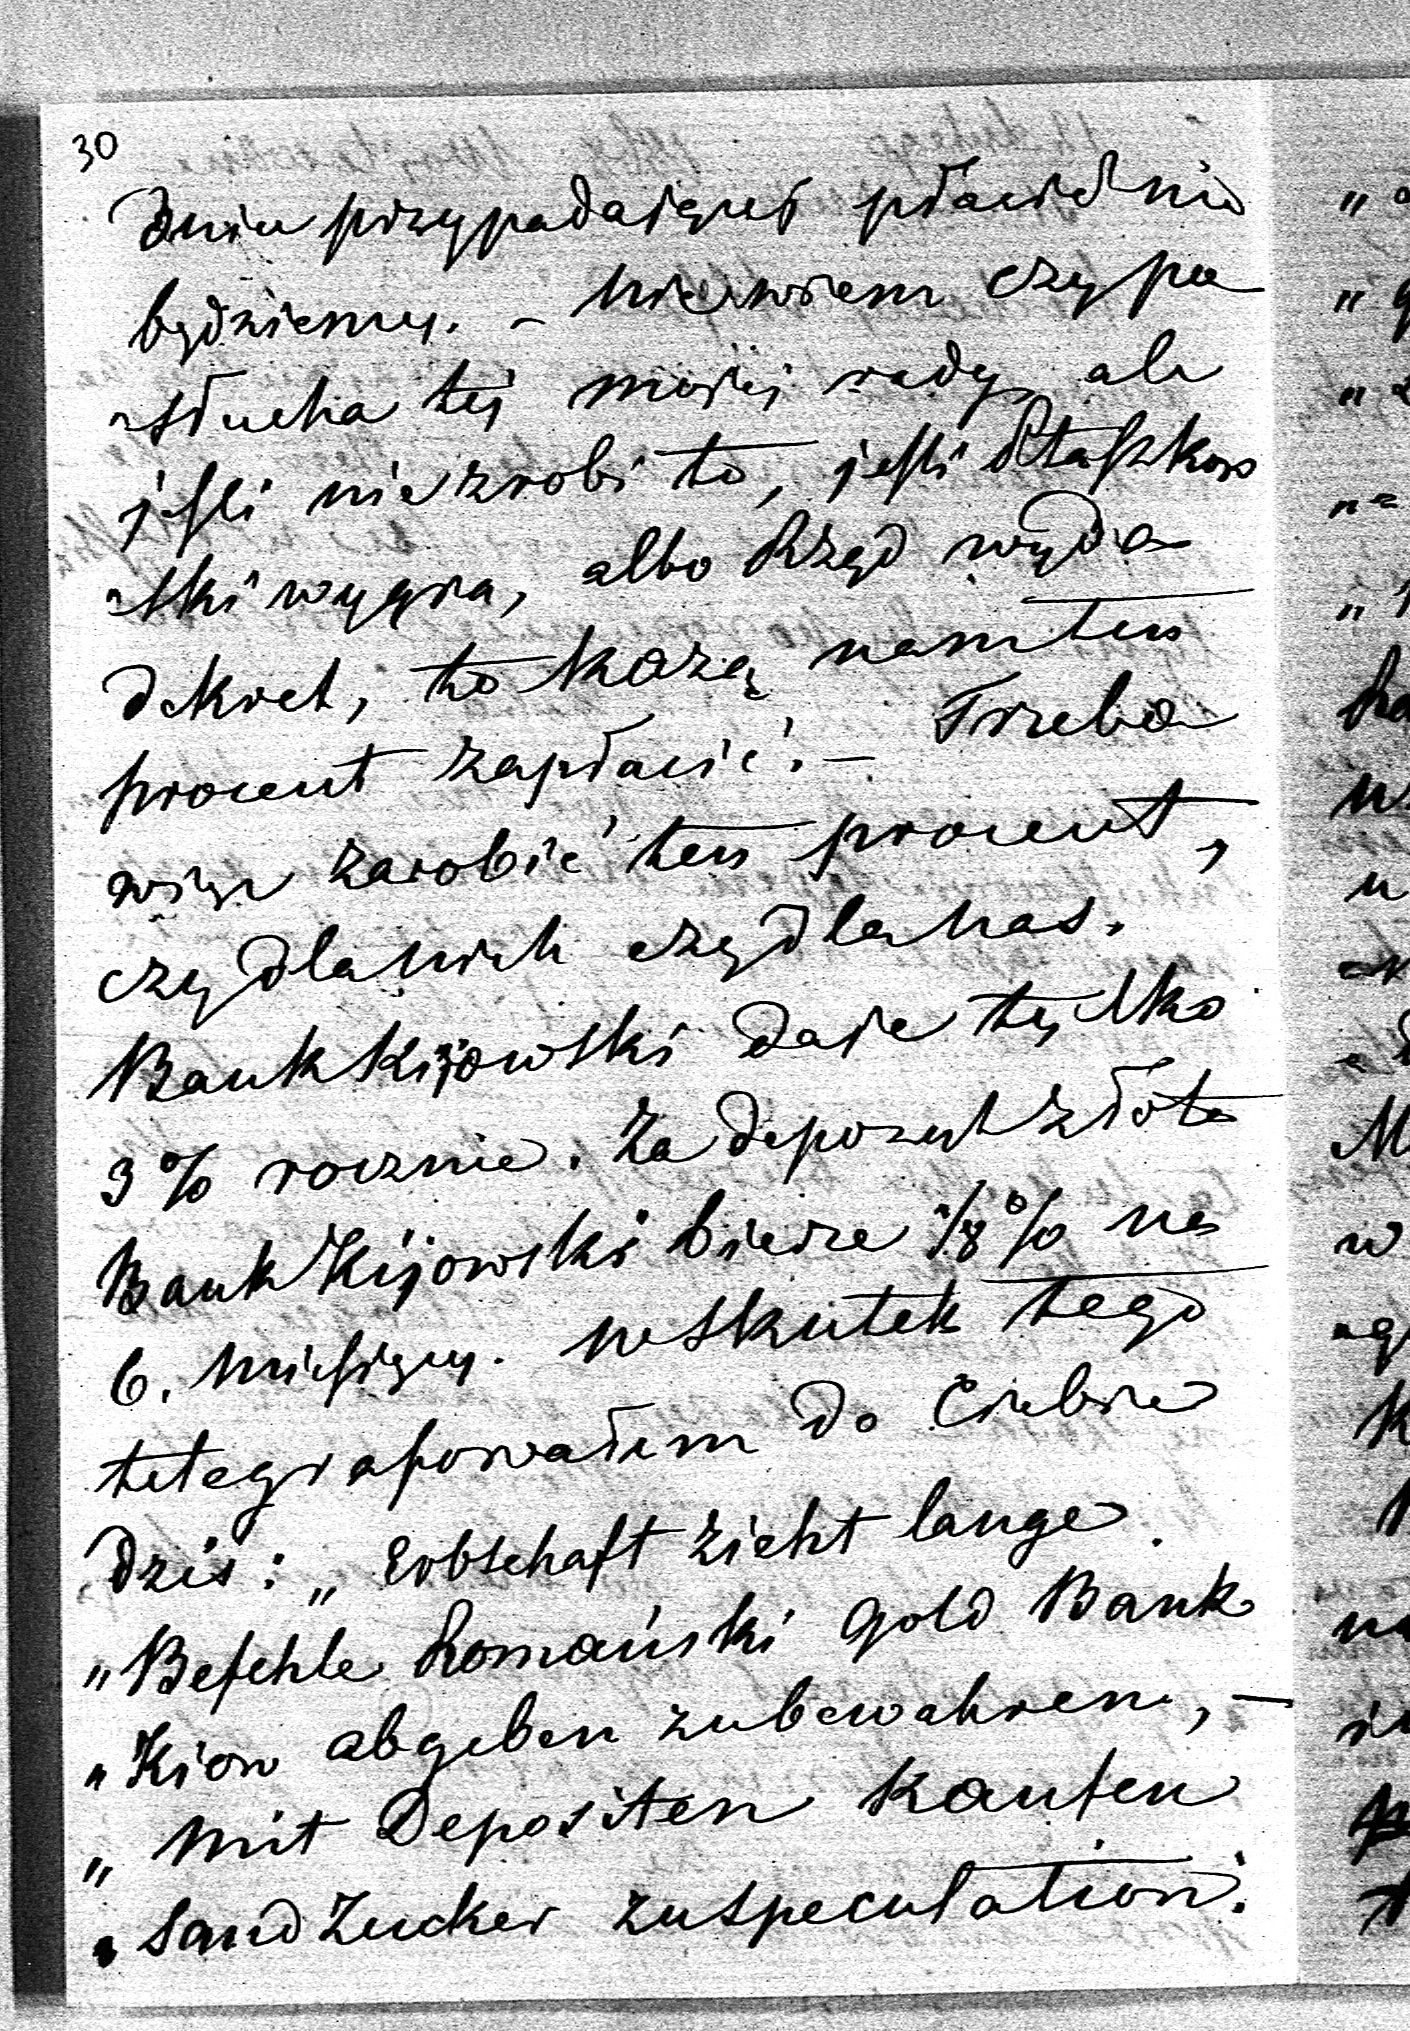 30
dniu przypadającej płacić nie
będziemy. – nie wiem czy po
"słucha tej mojej rady, ale
jeśli nie zrobi to, jeśli Staszkow
"ski wygra, albo Rząd wyda
dekret, to każą nam ten
procent zapłacić. – Trzeba
więc zarobić ten procent,
czy dla nich czy dla nas.
Bank Kijowski daje tylko
3% rocznie. Za depozyt złota
Bank Kijowski bierze 1/8% na
6. miesięcy. Wskutek tego
telegrafowałem do Ciebie
dziś: „Erbschaft zieht lange.
„Befehle Romański Gold Bank
„Kiow abgeben zubewahren, –
„mit Depositen kaufen
„Sand Zucker zuspeculation.